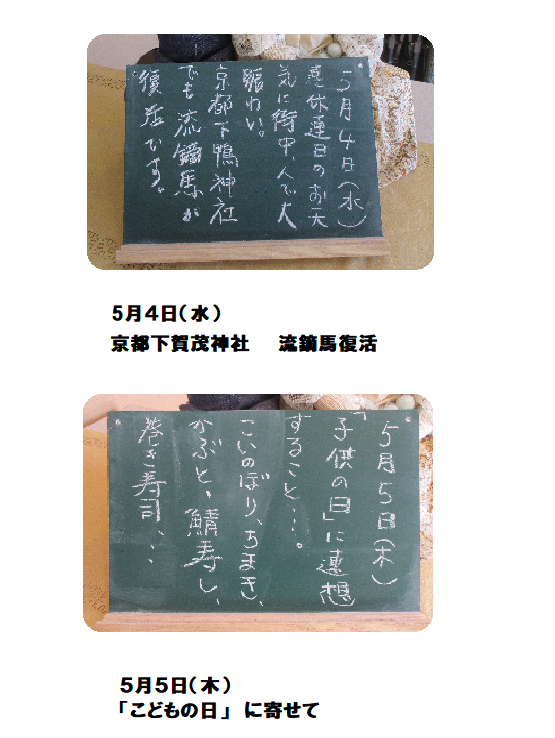 5月4日(水)
連休連日のお天
気に街中、人で大
賑わい。
京都下鴨神社
でも流鏑馬が
復活です。
5月4日(水)
京都下賀茂神社　流鏑馬復活
5月5日(木)
「子供の日」に連想
すること・・・。
こいのぼり、ちまき、
かぶと、鯖寿し、
巻き寿司、・・・
5月5日(木)
「こどもの日」に寄せて